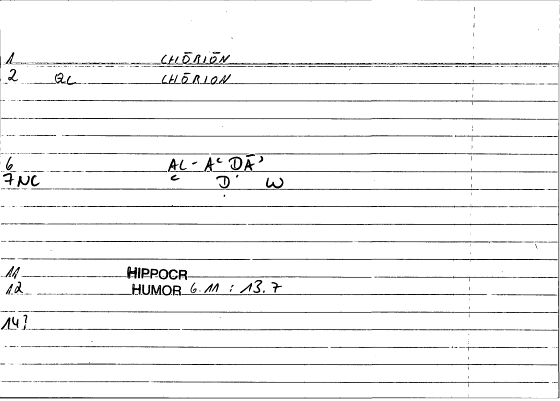 1 CHŌRIŌN
2 QL CHŌRION
6 AL - Aʿ DĀʾ
7 NC ʿ Ḍʾ W
11 HIPPOCR
12 HUMOR 6.11 : 13.7
14?